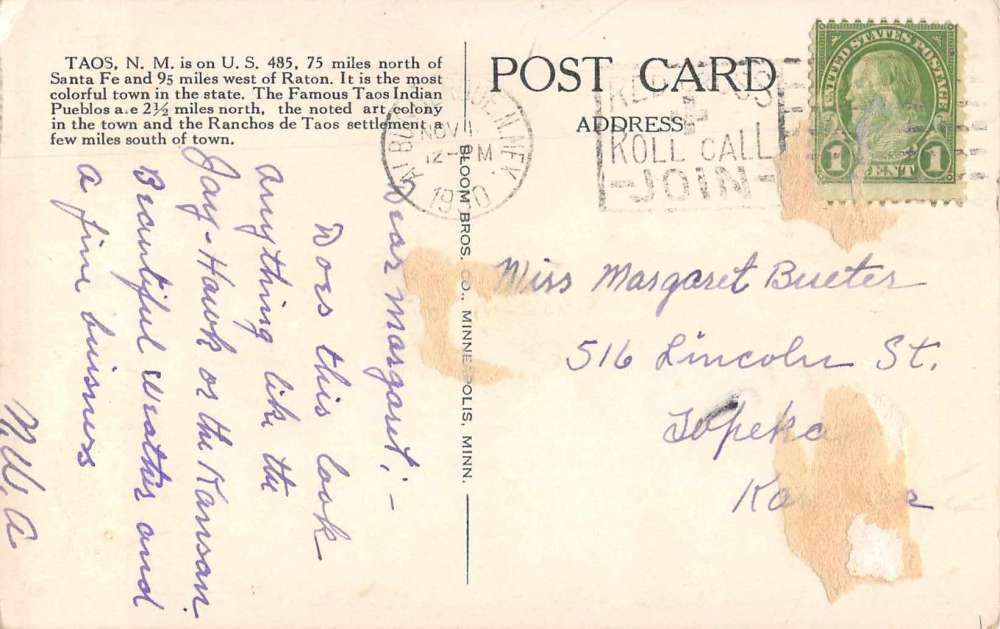 TAOS, N. M. is on U. S. 485, 75 miles north of
Santa Fe and 95 miles west of Raton. It is the most
colorful town in the state. The Famous Taos Indian
Pueblos a e 2½ miles north, the noted art colony
in the town and the Ranchos de Taos settlement a
few miles south of town.
POST CARD
ADDRESS
NOV
12- M
ROLL CALL
JOIN
UNITED STATES POSTAGE
1 CENT 1
BLOOM BROS. CO., MINNEAPOLIS, MINN.
Dear Margaret:-
Does this look
anything like the
Jay-Hawk or the Kansan
Beautiful Weather and
a fine buisness
Miss Margaret Bueter
516 Lincoln St.
Topeka